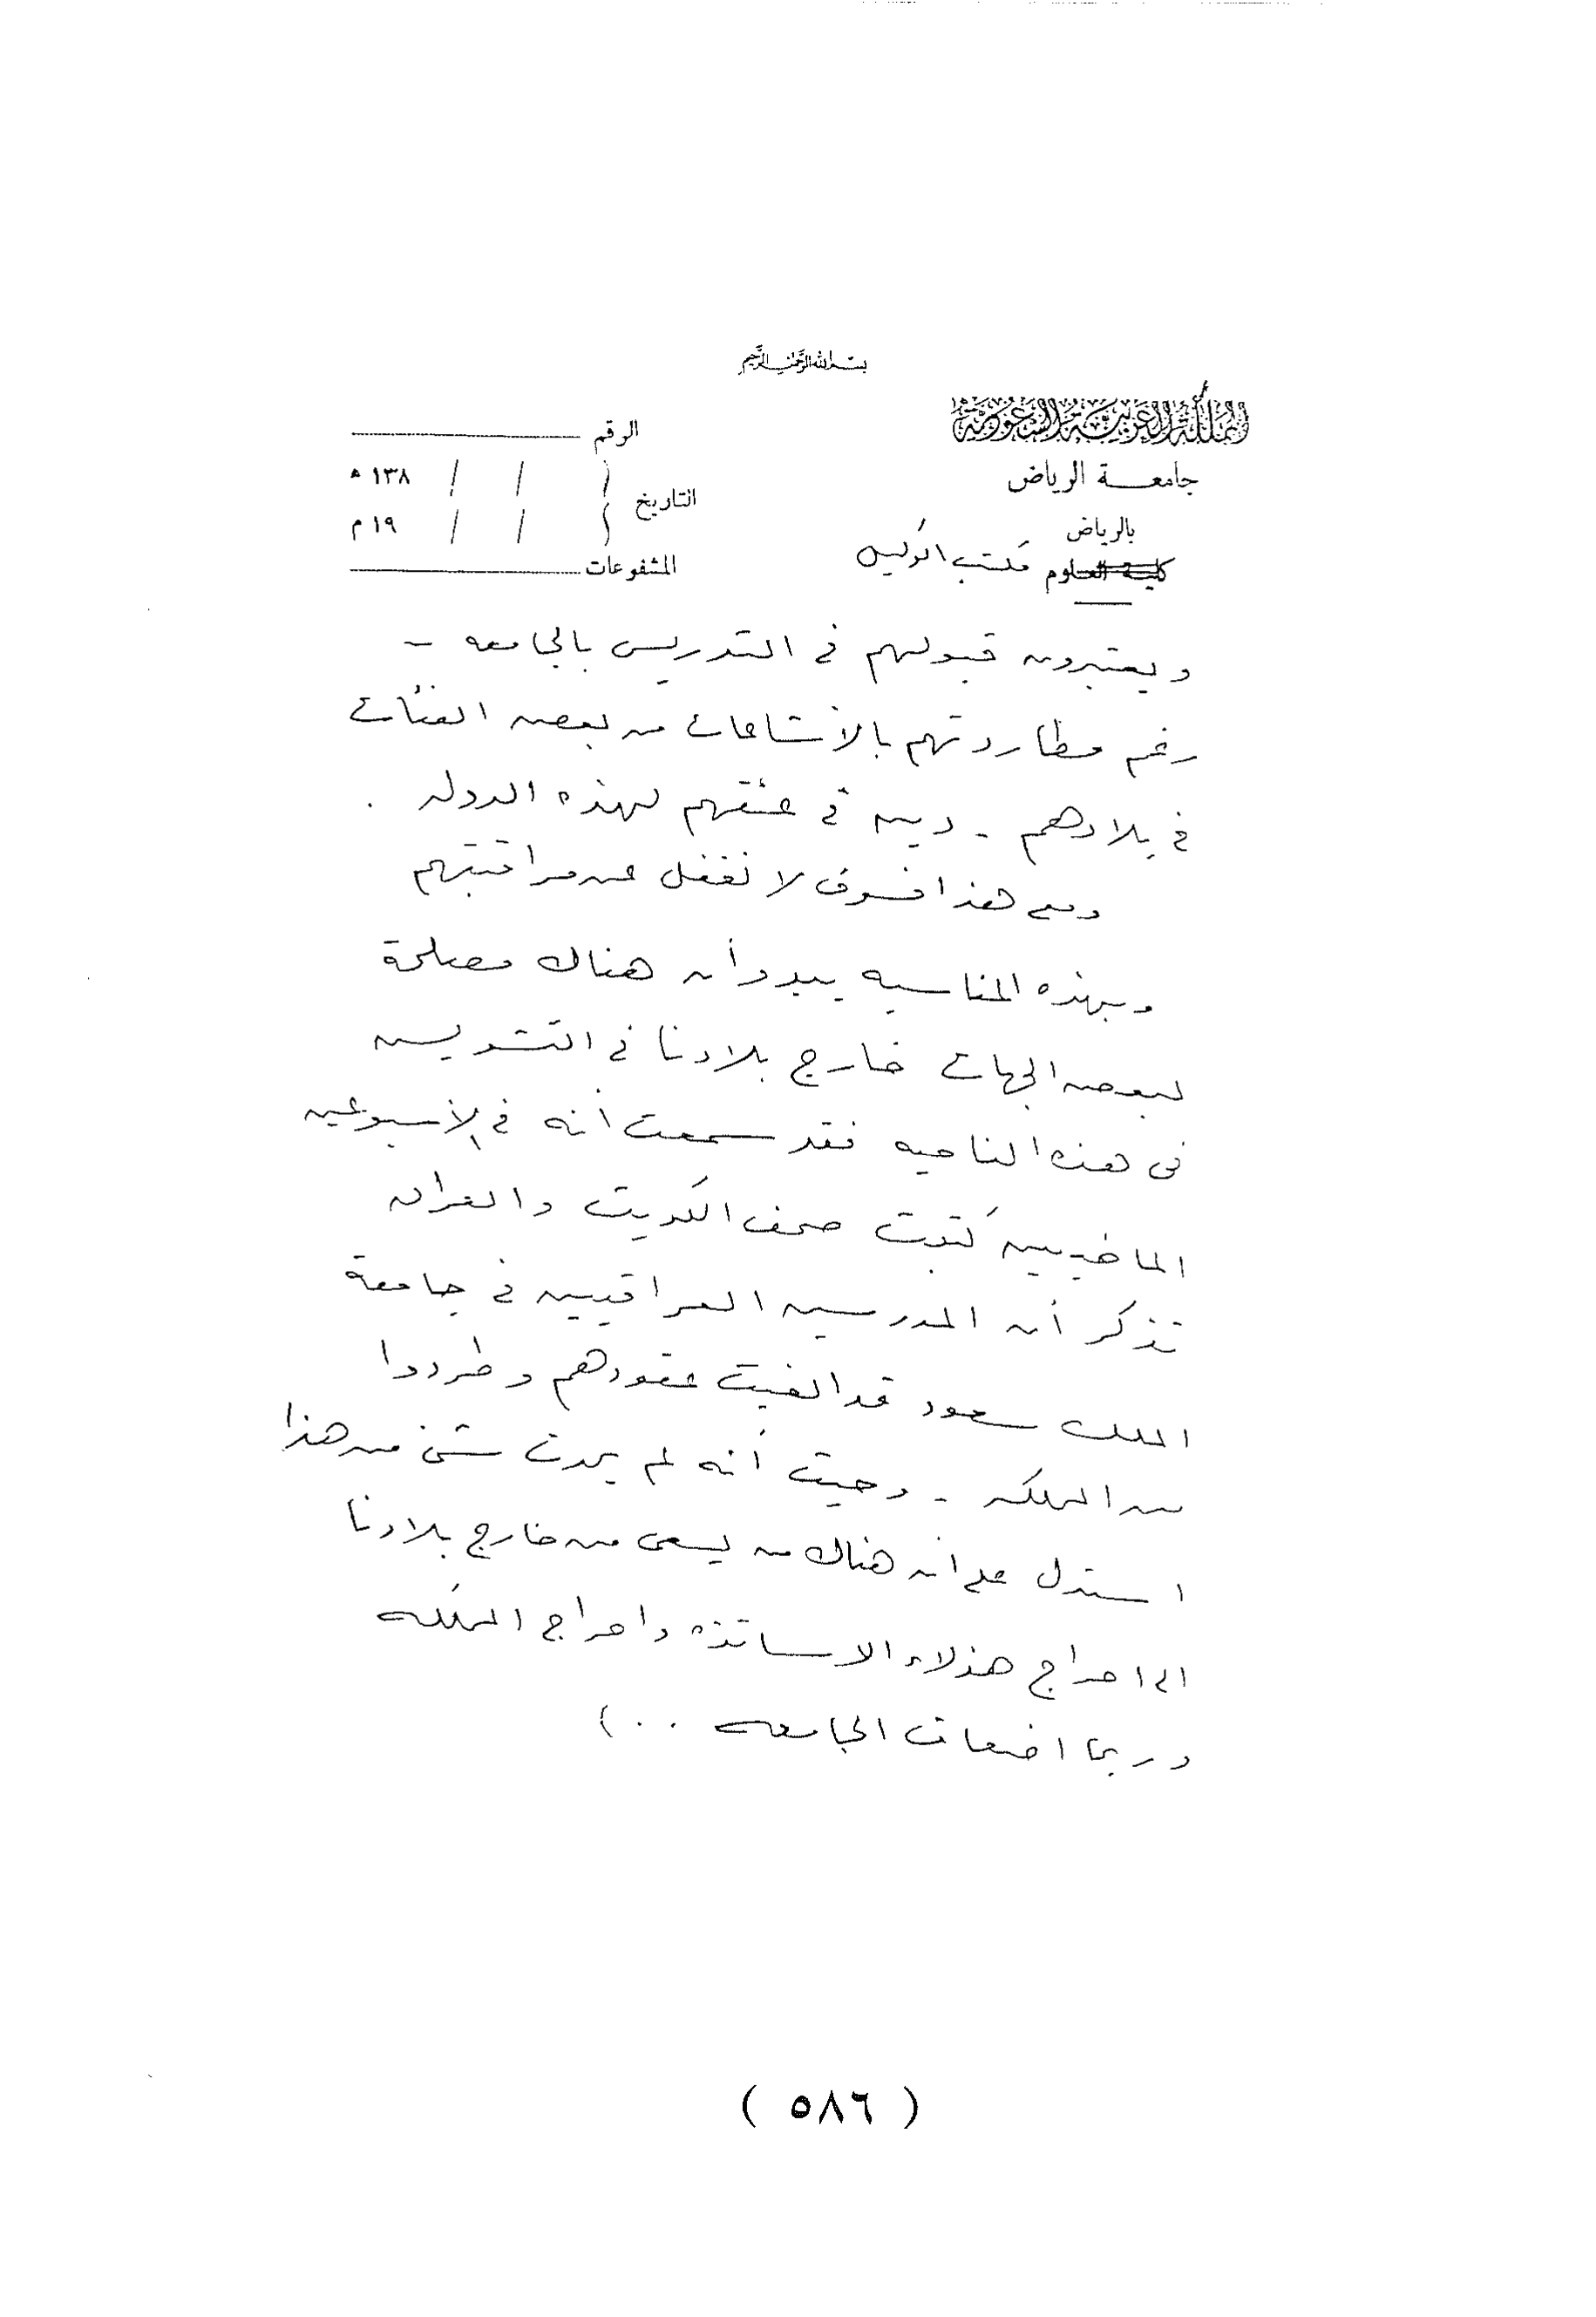 بسم الله الرحمن الرحيم
المملكة العربية السعودية
جامعة الرياض
بالرياض
كلية العلوم مكتب الوكيل
الرقم
التاريخ / / ١٣٨ ه
/ / ١٩ م
المشفوعات
ويعتبرون قبولهم في التدريس بالجامعه -
رغم مطاردتهم بالأشاعات من بعض الفئات
في بلادهم - دين في عنقهم لهذه الدوله .
ومع هذا فسوف لا نغفل عن مراقبتهم
وبهذه المناسبه يبدو أن هناك مصلحة
لبعض الجهات خارج بلادنا في التشويس
فى هذه الناحيه فقد سمعت أنه في الأسبوعين
الماضيين كتبت صحف الكويت والعراق
تذكر أن المدرسين العراقيين في جامعة
الملك سعود قد الغيت عقودهم وطردوا
من المملكه - وحيث أنه لم يحدث شئ من هذا
استدل على ان هناك من يسعى من خارج بلادنا
الى احراج هؤلاء الاساتذه واحراج المملكه
وربما اضعاف الجامعه ..)
( ٥٨٦ )